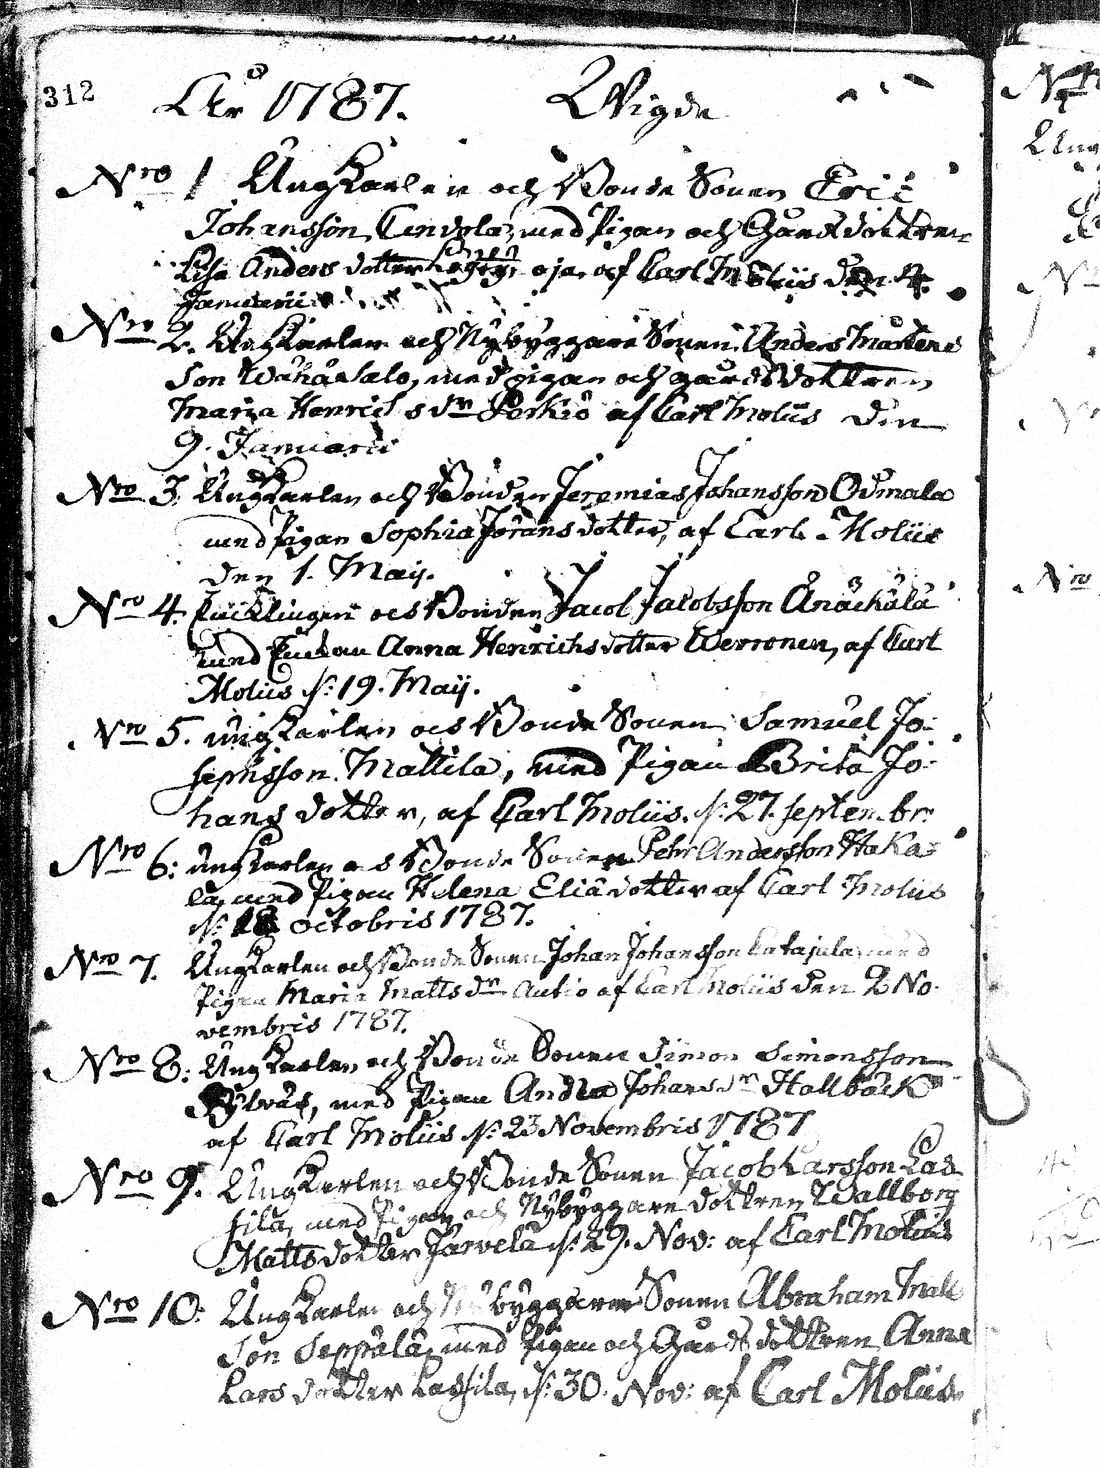 312 År 1787. Wigde
Nro 1 Ungkarlen och Bonde Sonen Eric
Johansson, med Pigan och Gårds dottren
Lisa Anders dotter af Carl Molüs den 4.
Januarii
Nro 2. Ungkarlen och Nybyggare Sonen Anders Mårtens
Son Wähäsalo, med pigan och gårds dottren
Maria Henrics dr Perkiö af Carl Molüs den
9. Januarii
Nro 3. Ungkarlen och Bonden Jeremias Johansson Odmala
med Pigan Sophia Jörans dotter, af Carl Molüs
den 1. Maij.
Nro 4. Enklingen och Bonden Jacob Jacobsson Änäckälä
med Enckan Anna Henrichs dotter Werronen, af Carl
Molüs d: 19. Maij.
Nro 5. ungkarlen och Bonde Sonen Samuel Jo-
sephsson Mattila, med Pigan Brita Jo-
hans dotter, af Carl Molüs. d: 27. septembr:
Nro 6: ungkarlen och Bonde Sonen Pehr Andersson Haka-
la, med Pigan Helena Eliä dotter af Carl Molüs
d: octobris 1787.
Nro 7. Ungkarlen och Bonde Sonen Johan Johansson Catajala, med
Pigan Maria Matts dr Autio af Carl Molüs den 2 No-
vembris 1787.
Nro 8: Ungkarlen och Bonde Sonen Simon Simonsson
med Pigan Johans dr Hallbäck
af Carl Molüs d: 23 Novembris 1787
Nro 9. Ungkarlen och Bonde Sonen Jacob Larsson Las-
sila, med Pigan och Nybyggare dottren Wallborg
Matts dotter Järvelä d: 29. Nov: af Carl Molüs
Nro 10: Ungkarlen och Nybyggaren Sonen Abraham Matts
Son Seppälä, med Pigan och Gårds dottren Anna
Lars dotter Lassila, d: 30. Nov: af Carl Molüs.